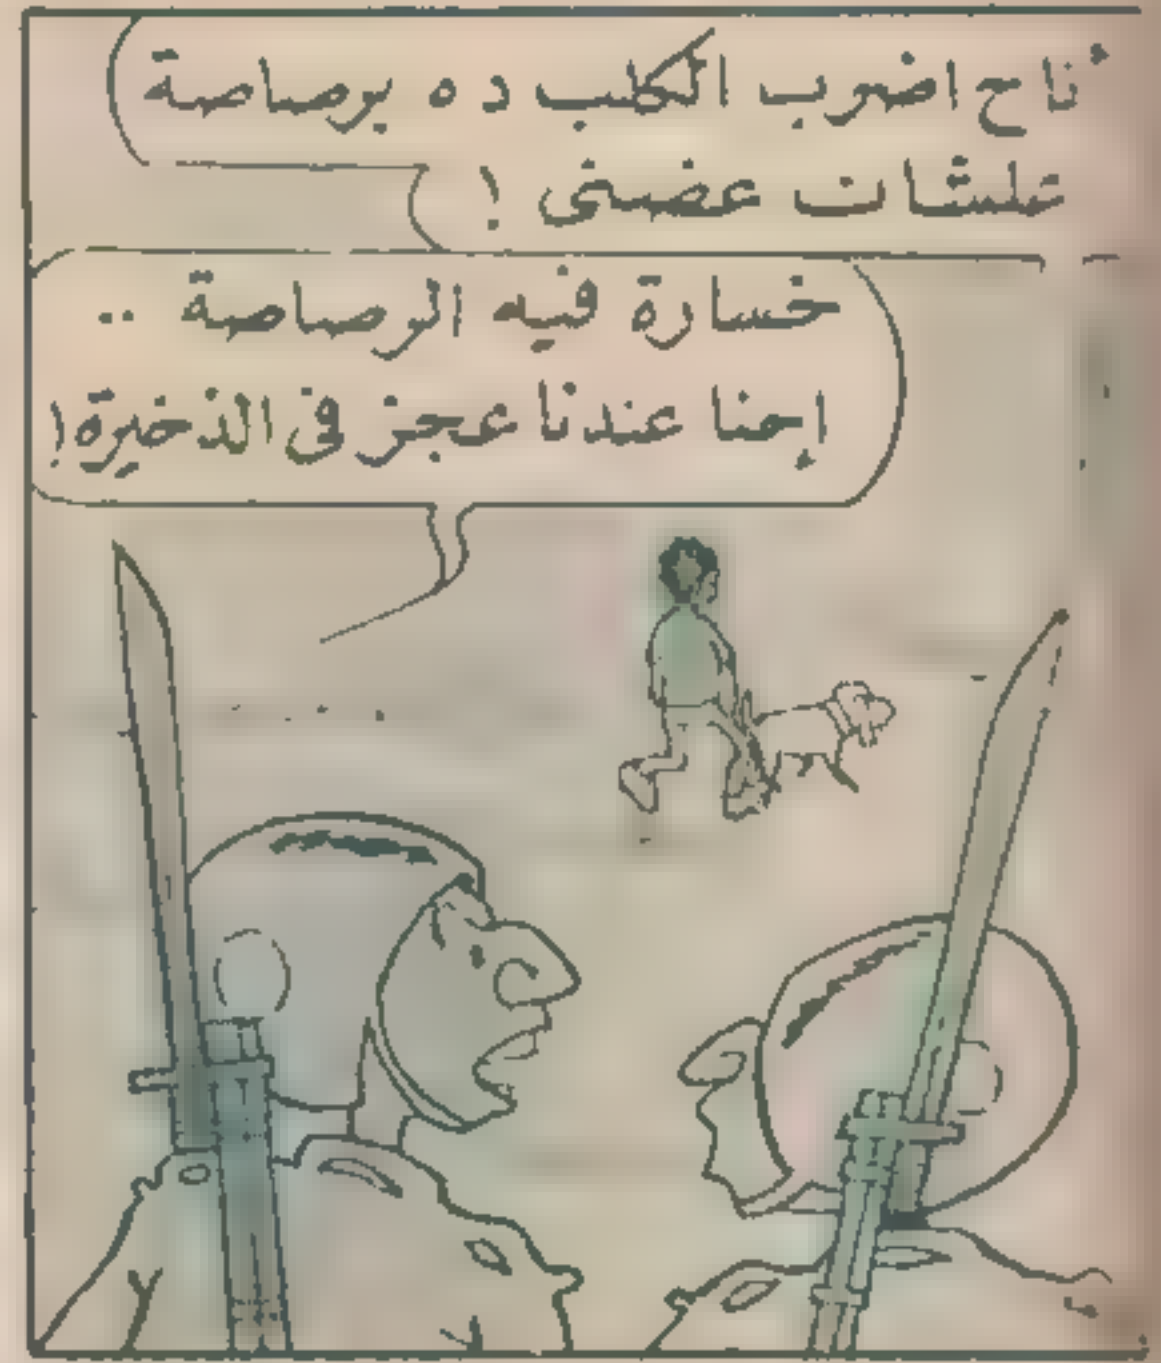 أنا ح اضرب الكلب ده برصاصة
علشان عضنى !
خسارة فيه الرصاصة ..
إحنا عندنا عجز فى الذخيرة !